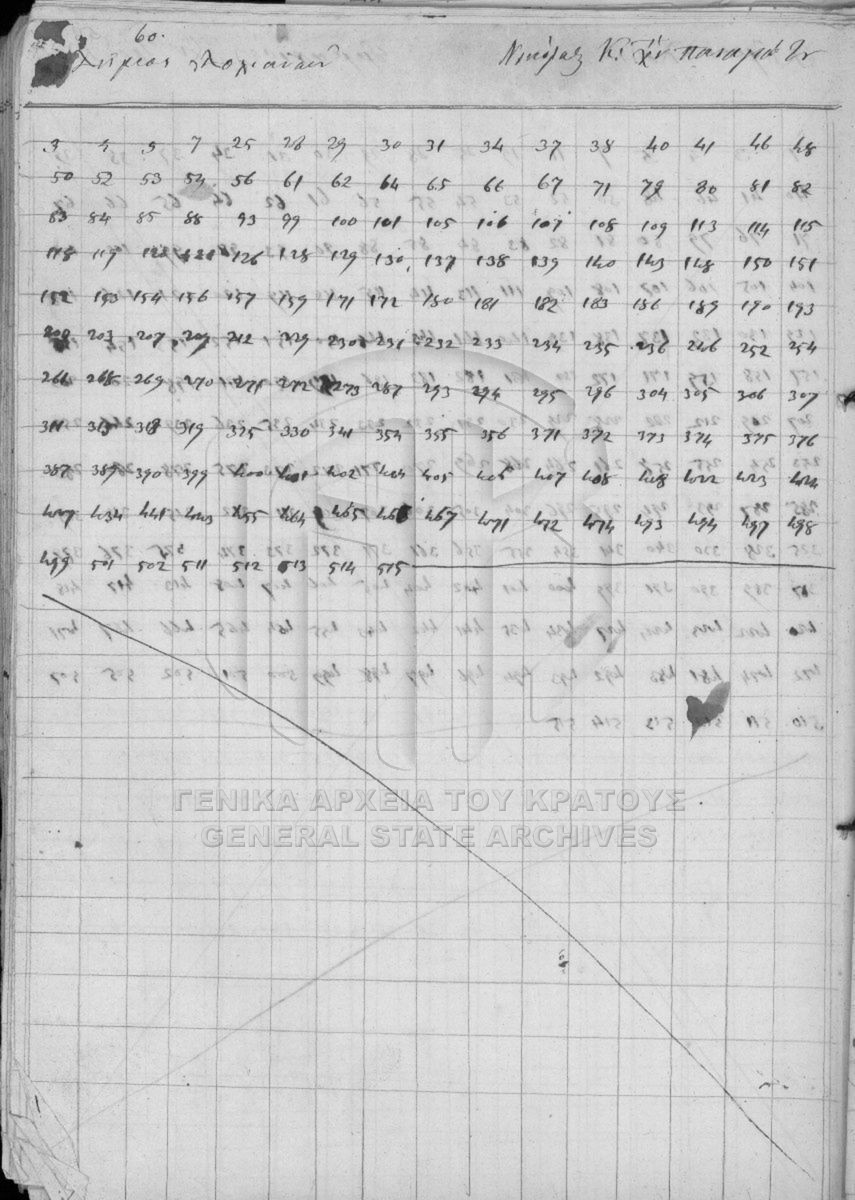 60.
Νικόλαος Κ.
3 4 5 7 25 28 29 30 31 34 37 38 40 41 46 48
50 52 53 54 56 61 62 64 65 66 67 71 79 80 81 82
83 84 85 88 93 99 100 101 105 106 107 108 109 113 114 115
118 119 126 128 129 130 137 138 139 140 143 148 150 151
152 153 154 156 157 159 171 172 180 181 182 183 186 189 190 193
203 207 209 212 229 230 231 232 233 234 235 236 246 252 254
266 268 269 270 271 272 273 287 293 294 295 296 304 305 306 307
311 313 318 319 325 330 341 354 355 356 371 372 373 374 375 376
387 389 390 399 400 401 402 404 405 406 407 408 418 422 423 424
427 434 441 443 455 464 465 466 467 471 472 474 493 494 497 498
499 501 502 511 512 513 514 515
ΓΕΝΙΚΑ ΑΡΧΕΙΑ ΤΟΥ ΚΡΑΤΟΥΣ
GENERAL STATE ARCHIVES